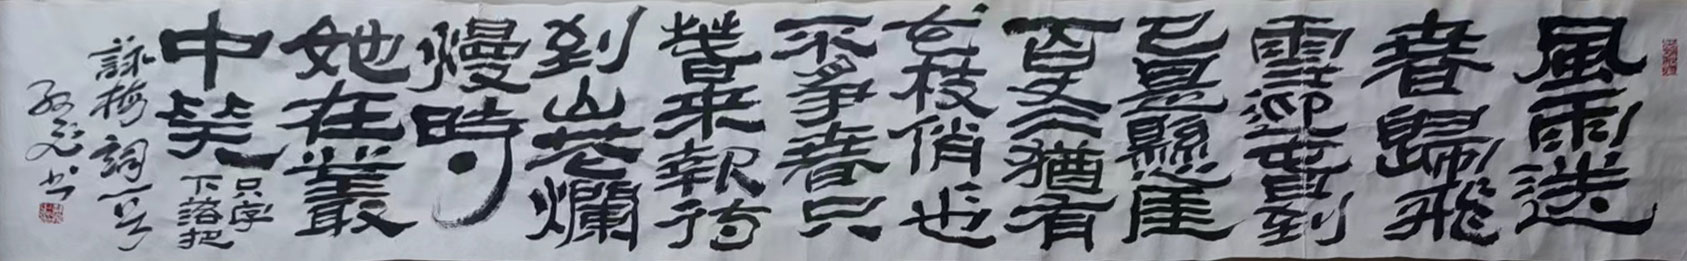 風雨送
春歸飛
雪迎春到
已是懸崖
百丈冰猶有
花枝俏也
不爭春只
春來報待
到山花爛
熳時
她在叢
中笑
只字
下落把
詠梅詞一首
書